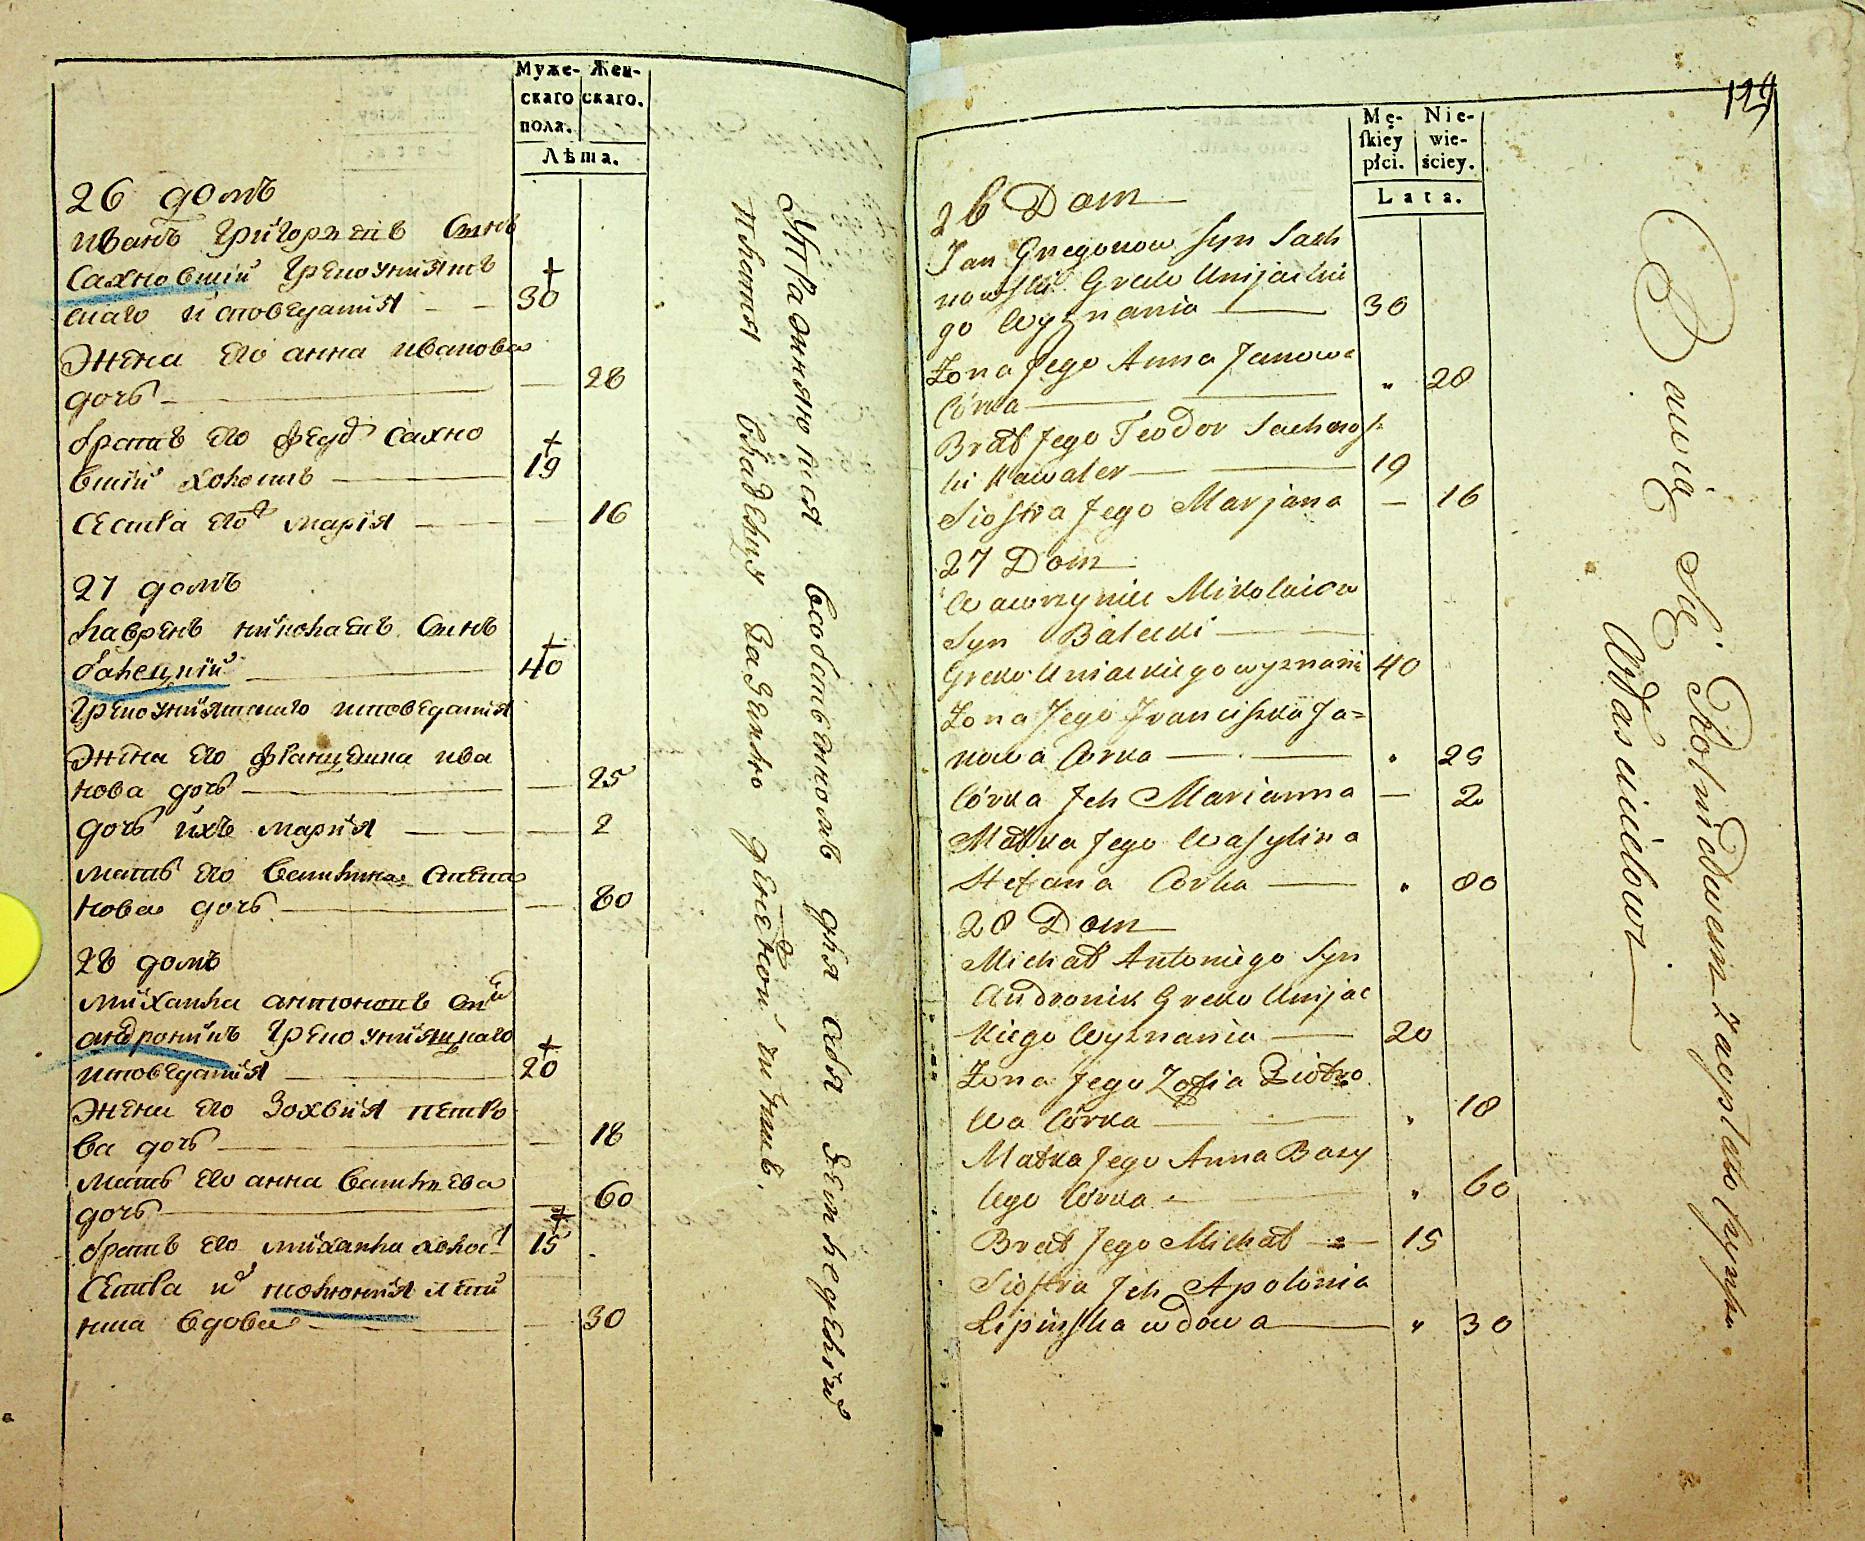 Муже-
скаго
пола.
Жен-
скаго.
Лѣта.
26 домъ
иванъ григорневъ Синъ
Сахновшiй Греко униятъ
скаго исповеданiя 30
Жена его анна иванова
дочь 28
братъ его феуд Сахно
вшiй холостъ 19
Сестра его марiя 16
27 домъ
лавренъ николаевъ Синъ
балецкiй 40
Греко униятскаго исповеданiя
Жена его францишка ива
нова дочь 25
дочь ихъ мария 2
мать его василина Степа
нова дочь 80
28 домъ
михайла антоновъ син
андроникъ Греко унияцкаго
исповеданiя 20
Жена его Зохвия петро
ва дочь 18
мать его анна василева
дочь 60
братъ его михайла холос 15
Сестра и полония липи
нша вдова 30
Упражняются въ собственномъ для себя земледелiи
платя владельцу денежной чиншъ.
129
Mę-
skiéy
płci.
Nie-
wie-
ściey.
Lata.
26 Dom
Jan Gregorow syn Sach
nowski Greko Unijackie
go Wyznania 30
Żona Jego Anna Janowa
Córka 28
Brat Jego Teodor Sachnows
ki Kawaler 19
Siostra Jego Marjana 16
27 Dom
Wawrzyniec Mikołaiow
Syn Balecki
Greko Uniackiego wyznani 40
Żona Jego Franciszka Ja=
nowa Corka 25
Córka Ich Marianna 2
Matka Jego Wasylina
Stefana Corka 80
28 Dom
Michał Antoniego Syn
Andronik Greko Unijac
kiego Wyznania 20
Żona Jego Zofia Piotro
wa Córka 18
Matka Jego Anna Bazy
lego Córka 60
Brat Jego Michał 15
Siostra Ich Apolonia
Lipińska wdowa 30
Bawią Się Rolnictwem zapłatą czynszu
Właścicielowi